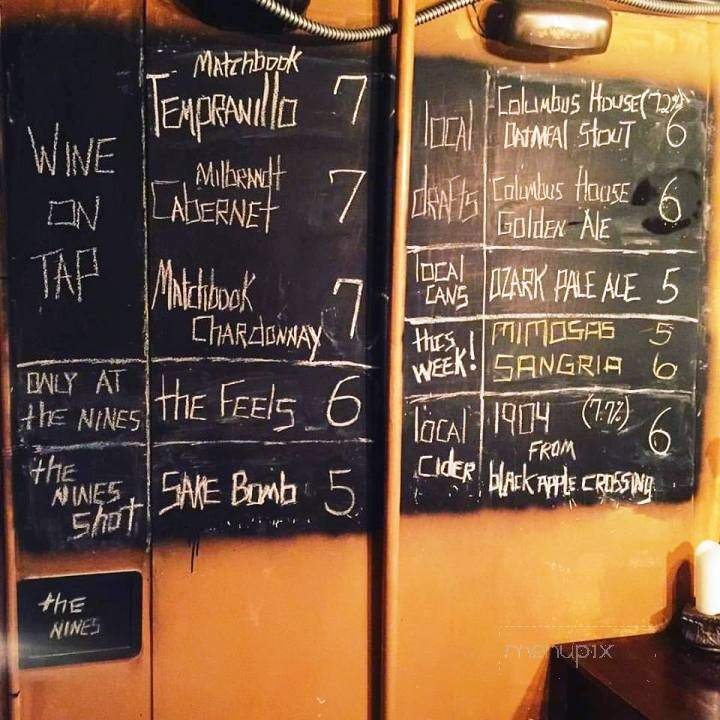 WINE
ON
TAP
Matchbook
TEMPRANIllO 7
Milbrandt
CABERNET 7
Matchbook
CHARDONNAY 7
ONLY AT
the NINES
the FEELS 6
the
NINES
Shot
SAKE Bomb 5
the
NINES
local
DRAFTS
Columbus House (7.2%)
OATMEAL STOUT 6
Columbus House
Golden Ale 6
local
CANS
OZARK PALE ALE 5
this
WEEK!
MIMOSAS 5
SANGRIA 6
local
CIDER
1904 (7.7%)
FROM
black APPLE CROSSING 6
menupix